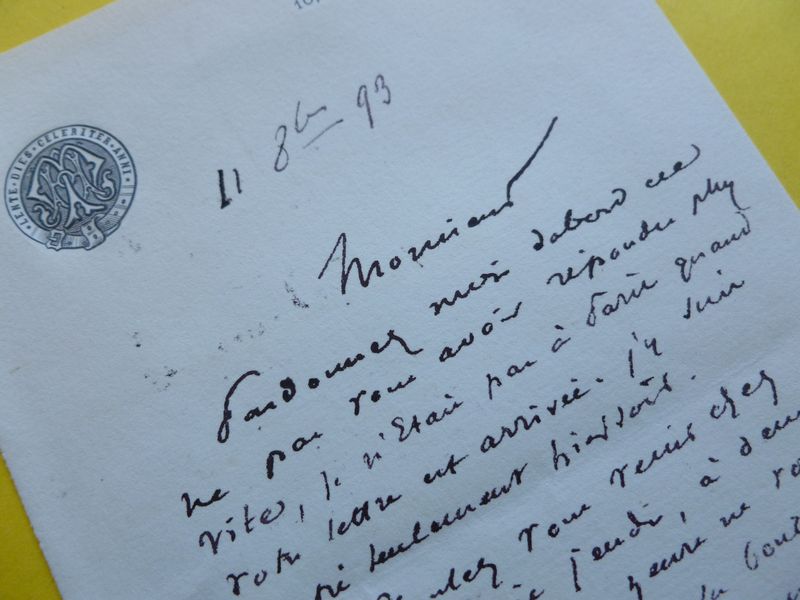 10,
LENTE · DIES · CELERITER · ANNI
11 8bre 93
Monsieur
Pardonnez moi d'abord de
ne pas vous avoir répondu plus
vite, je n'étais pas à Paris quand
votre lettre est arrivée. J'y suis
seulement hier soir.
vous venir chez
jeudi, à deux
heure ne vo